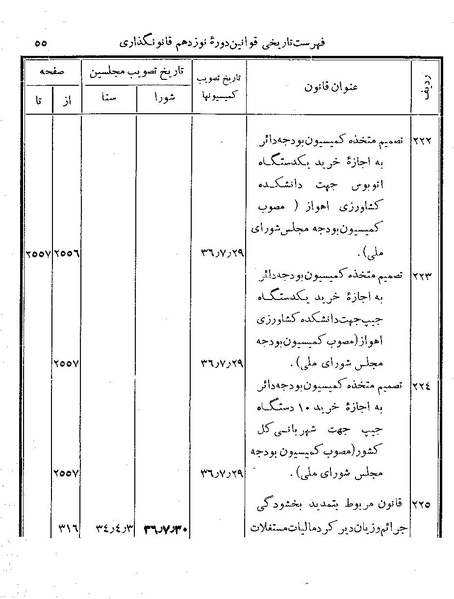 فهرست تاریخی قوانین دورهٔ نوزدهم قانونگذاری ۵۵
ردیف
عنوان قانون
تاریخ تصویب کمیسیونها
تاریخ تصویب مجلسین
شورا سنا
صفحه
از تا
۲۲۲ تصمیم متخذه کمیسیون بودجه دائر
به اجازهٔ خرید یکدستگاه
اتوبوس جهت دانشکده
کشاورزی اهواز ( مصوب
کمیسیون بودجه مجلس شورای
ملی). ۳۶٫۷٫۲۹ ۲۵۵۶ ۲۵۵۷
۲۲۳ تصمیم متخذه کمیسیون بودجه دائر
به اجازهٔ خرید یکدستگاه
جیپ جهت دانشکده کشاورزی
اهواز (مصوب کمیسیون بودجه
مجلس شورای ملی). ۳۶٫۷٫۲۹ ۲۵۵۷
۲۲۴ تصمیم متخذه کمیسیون بودجه دائر
به اجازهٔ خرید ۱۰ دستگاه
جیپ جهت شهربانی کل
کشور (مصوب کمیسیون بودجه
مجلس شورای ملی). ۳۶٫۷٫۲۹ ۲۵۵۷
۲۲۵ قانون مربوط بتمدید بخشودگی
جرائم و زیان دیرکرد مالیات مستغلات ۳۶٫۷٫۳۰ ۳۴٫۴٫۳ ۳۱۶